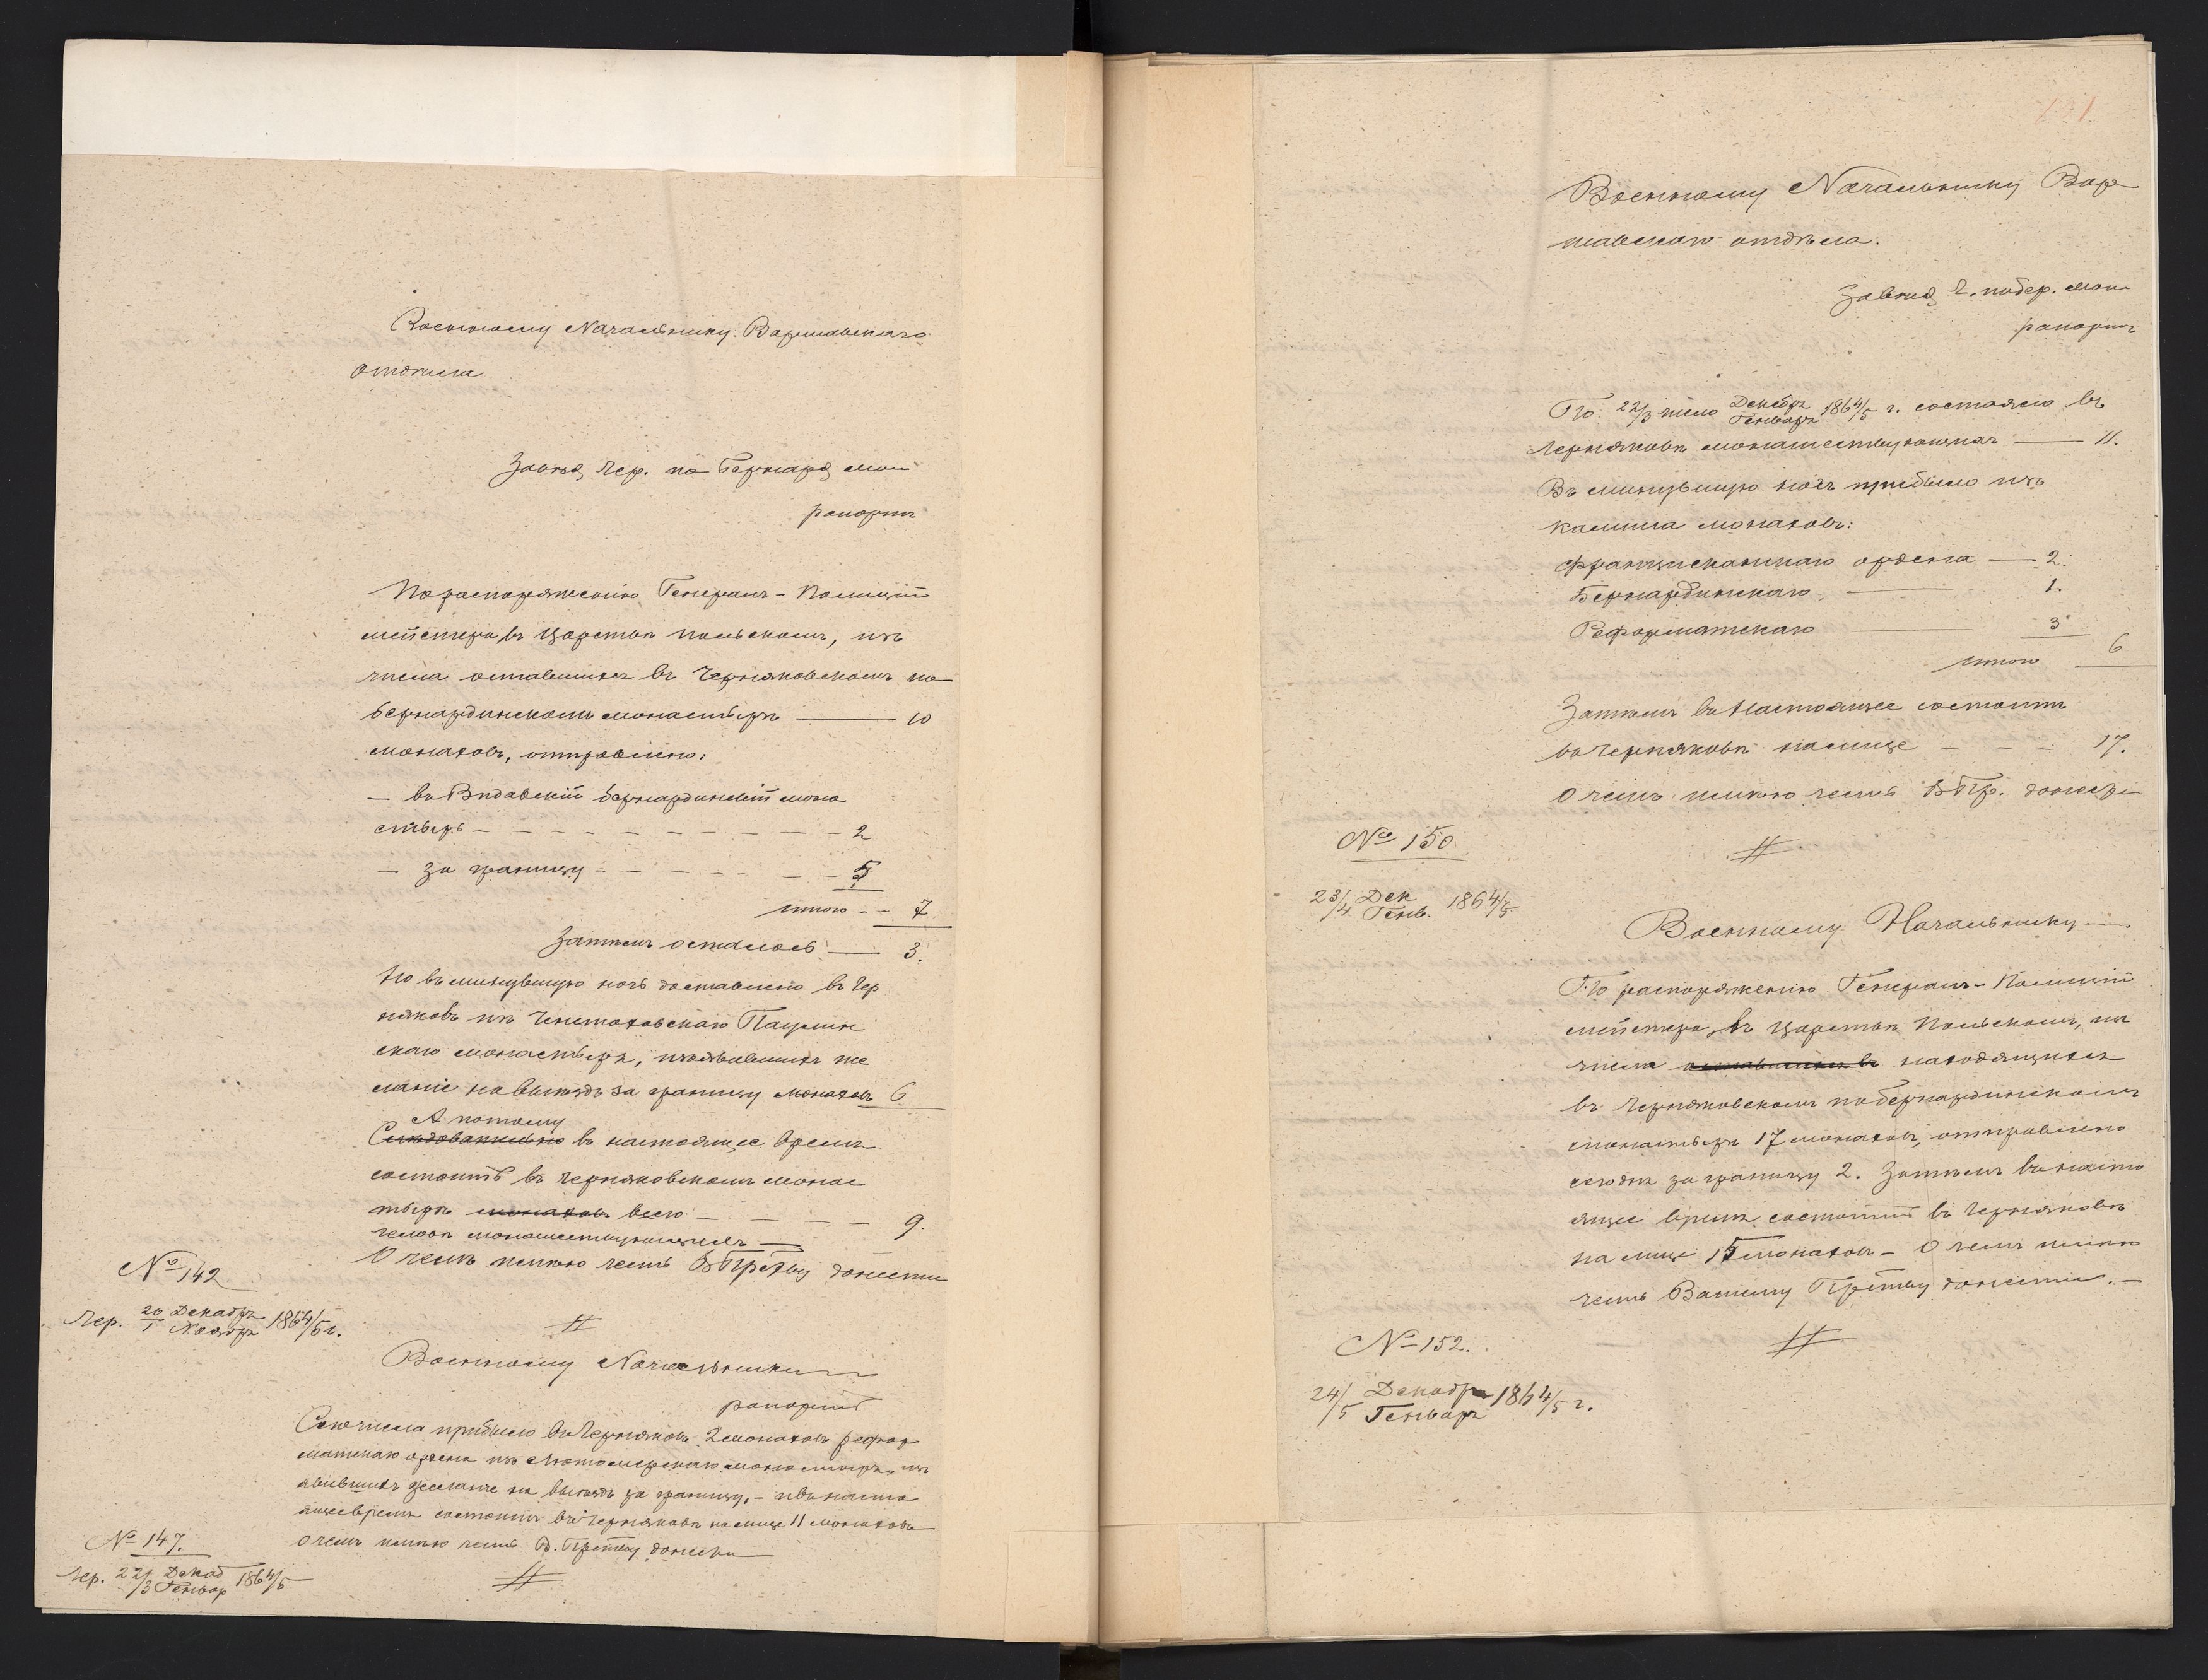 Военному Начальнику Варшавскаго
отдѣла
Завѣд. Чер. по Бернард. мон.
рапортъ
По распоряженію Генералъ-Полиций
мейстера въ Царствѣ Польскомъ, изъ
числа оставшихся въ Черняковскомъ по
бернардинскомъ монастырѣ — 10
монаховъ, отправлено:
— въ Видавскій бернардинскій мона
стырь — 2
— за границу — 5
итого — 7
Затѣмъ осталось — 3.
Но въ минувшую ночь доставлено въ Чер
няковъ изъ Ченстоховскаго Паулин
скаго монастыря, изъявившихъ же
ланіе на выѣздъ за границу монаховъ 6
А потому
Слѣдовательно въ настоящее время
состоитъ въ Черняковскомъ монас
тырѣ монаховъ всего — 9.
человѣкъ монашествующихъ —
О чемъ имѣю честь В Прству донести
№ 142
Чер. 20/1 Декабря/Ноября 1864/5 г.
Военному Начальнику
рапортъ
Сего числа прибыло въ Черняковъ 2 монаховъ рефор
матскаго ордена изъ Лютомерскаго монастыря, изъ
явившихъ желаніе на выѣздъ за границу, — и въ насто
ящее время состоитъ въ Черняковѣ на лице 11 монаховъ
О чемъ имѣю честь В. Прству донести
№ 147.
Чер. 22/3 Декаб/Генвар 1864/5
Военному Начальнику Вар
шавскаго отдѣла.
Завѣд. Ч. побер. мон.
рапортъ
По 22/3 число Декабря/Генваря 1864/5 г. состояло въ
Черняковѣ монашествующихъ — 11.
Въ минувшую ночь прибыло изъ
Калиша монаховъ:
Францисканскаго ордена — 2.
Бернардинскаго — 1.
Реформатскаго — 3
итого 6
Затѣмъ въ настоящее состоитъ
въ Черняковѣ на лице — 17.
О чемъ имѣю честь В Пр. донести
№ 150
23/4 Дек/Генв. 1864/5
Военному Начальнику —
По распоряженію Генералъ-Полиций
мейстера, въ Царствѣ Польскомъ, изъ
числа оставшихся въ находящихся
въ Черняковскомъ побернардинскомъ
монастырѣ 17 монаховъ, отправлено
сего дня за границу 2. Затѣмъ въ насто
ящее время состоитъ въ Черняковѣ
на лице 15 монаховъ — О чемъ имѣю
честь Вашему Прству донести. —
№ 152.
24/5 Декабря/Генваря 1864/5 г.